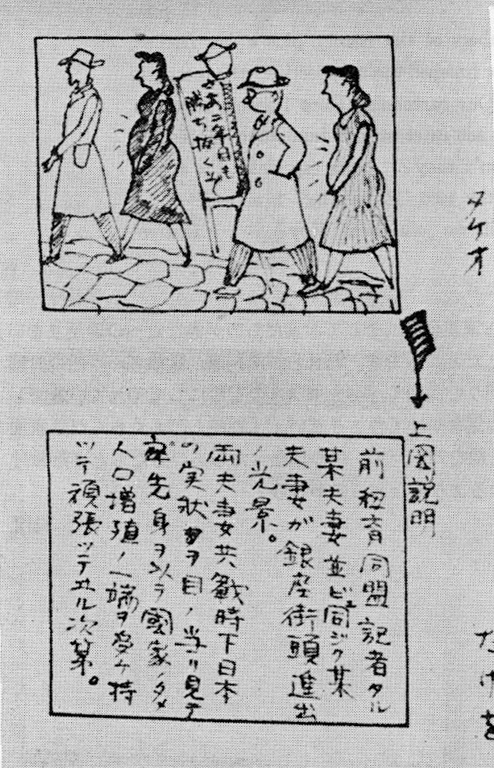 さあ二年目も
勝ち抜くぞ
タケオ
上図説明
前租斉同盟記者タル
某夫妻並ビニ同ジク某
夫妻ガ銀座街頭進出
ノ光景。
両夫妻共戦時下日本
ノ実状ヲ目ノ当リ見テ
率先身ヲ以ラ國家ノタメ
人口増殖ノ一端ヲ受ケ持
ツテ頑張ツテヰル次第。
だけを